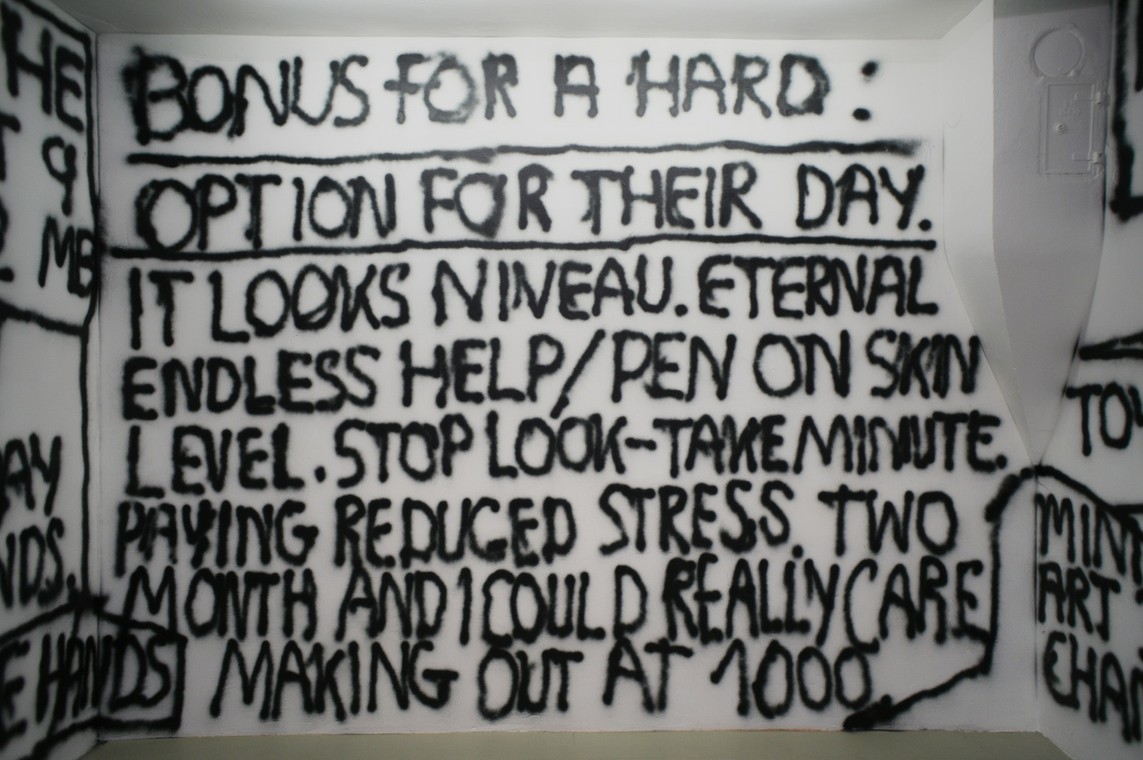 BONUS FOR A HARD:
OPTION FOR THEIR DAY.
IT LOOKS NIVEAU. ETERNAL
ENDLESS HELP/PEN ON SKIN
LEVEL. STOP LOOK-TAKE MINUTE.
PAYING REDUCED STRESS. TWO
MONTH AND I COULD REALLY CARE
MAKING OUT AT 1000
HE
9
MB
AY
NDS.
E HANDS
TOW
MINT
ART
CHAN